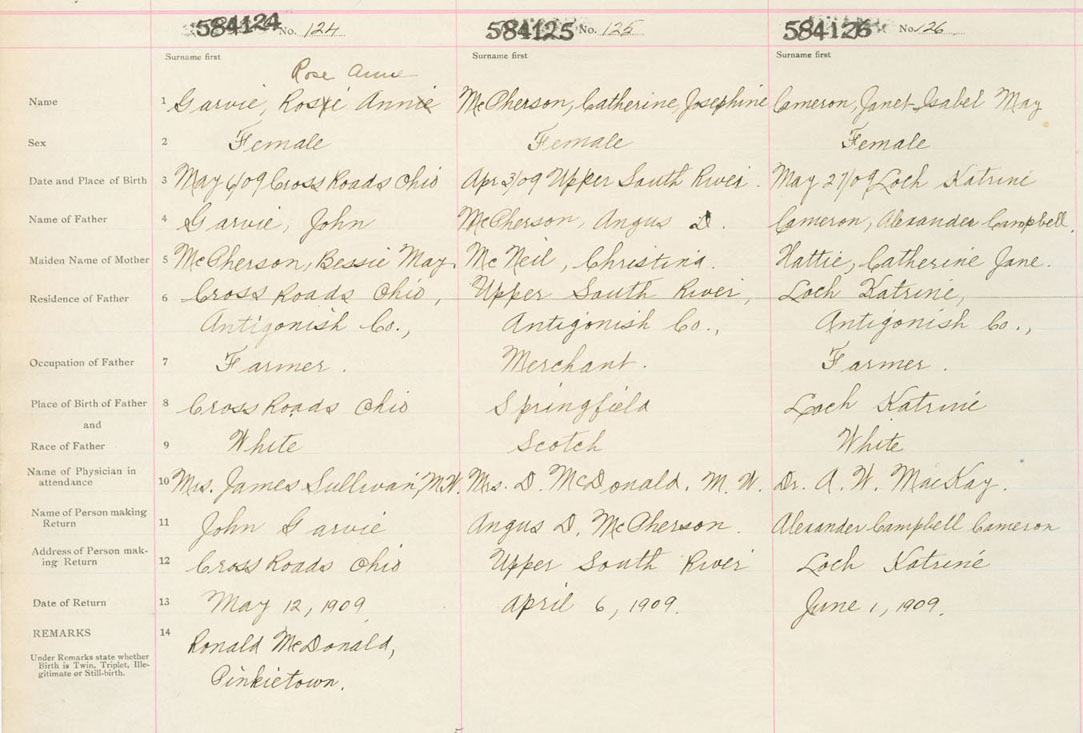 584124 No. 124 584125 No. 125 584126 No. 126
Surname first Surname first Surname first
Rose Anne
Name 1 Garvie, Rosie Annie McPherson, Catherine Josephine Cameron, Janet Isabel May
Sex 2 Female Female Female
Date and Place of Birth 3 May 6/09 Cross Roads Ohio Apr 3/09 Upper South River. May 27/09 Loch Katrine
Name of Father 4 Garvie, John McPherson, Angus D. Cameron, Alexander Campbell.
Maiden Name of Mother 5 McPherson, Bessie May. McNeil, Christina. Hattie, Catherine Jane.
Residence of Father 6 Cross Roads Ohio, Upper South River, Loch Katrine,
Antigonish Co., Antigonish Co., Antigonish Co.,
Occupation of Father 7 Farmer. Merchant. Farmer.
Place of Birth of Father 8 Cross Roads Ohio Springfield Loch Katrine
and
Race of Father 9 White Scotch White
Name of Physician in
attendance 10 Mrs. James Sullivan, M.W. Mrs. D. McDonald. M. W. Dr. A. W. MacKay.
Name of Person making
Return 11 John Garvie Angus D. McPherson. Alexander Campbell Cameron
Address of Person mak-
ing Return 12 Cross Roads Ohio Upper South River Loch Katrine
Date of Return 13 May 12, 1909 April 6, 1909. June 1, 1909.
REMARKS 14 Ronald McDonald,
Under Remarks state whether
Birth is Twin, Triplet, Ille-
gitimate or Still-birth.
Pinkietown.